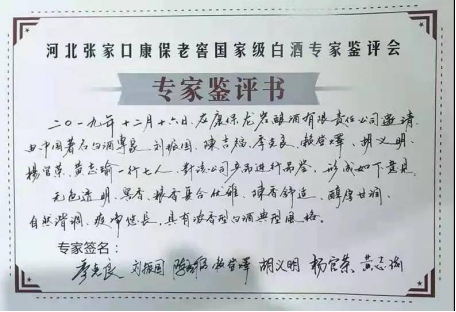 河北张家口康保老窖国家级白酒专家鉴评会
专家鉴评书
二〇一九年十二月十六日,在康保龙岩酿酒有限责任公司邀请
由中国著名白酒专家 刘振国、陈志强、李克良、赖登燡、胡义明、
杨官荣、黄志瑜一行七人,对该公司产品进行品鉴,形成如下意见:
无色透明、窖香、粮香复合优雅、陈香舒适、醇厚甘润、
自然谐调、爽净悠长,具有浓香型白酒典型风格。
专家签名:
李克良 刘振国 赖登燡 胡义明 杨官荣 黄志瑜